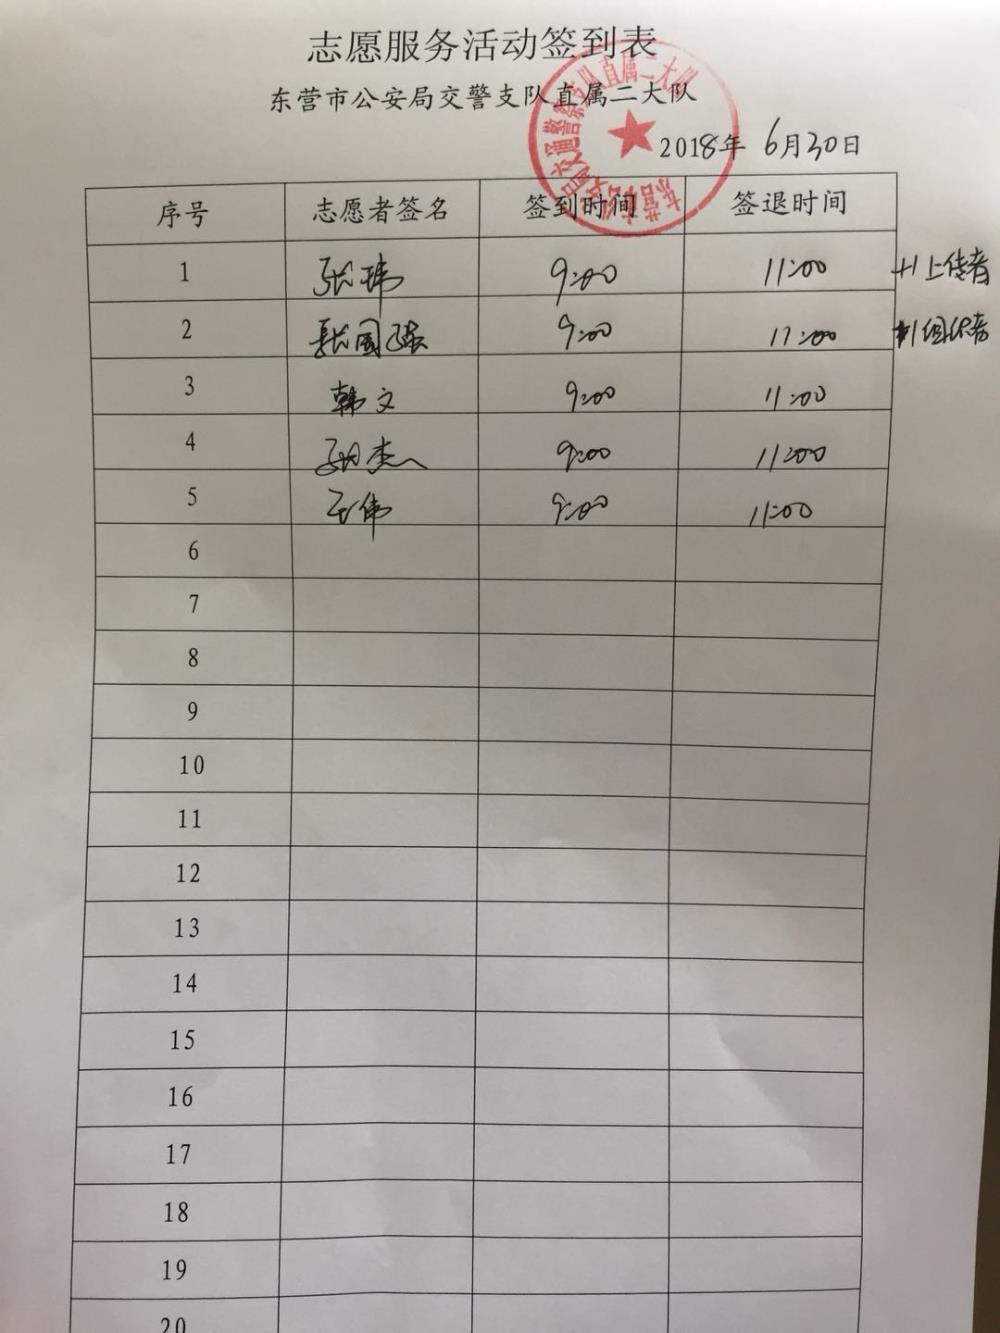 志愿服务活动签到表
东营市公安局交警支队直属二大队
2018年 6月30日
序号 志愿者签名 签到时间 签退时间
1 张玮 9:00 11:00 +1上传者
2 张国 9:00 11:00 +1组织者
3 韩文 9:00 11:00
4 杰 9:00 11:00
5 王伟 9:00 11:00
6
7
8
9
10
11
12
13
14
15
16
17
18
19
20